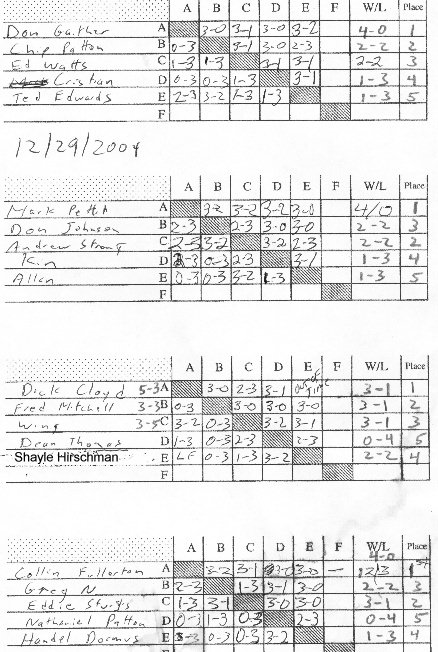 A B C D E F W/L Place
Don Gaither A 3-0 3-1 3-0 3-2 4-0 1
Chip Patton B 0-3 3-1 3-0 2-3 2-2 2
Ed Watts C 1-3 1-3 3-1 3-1 2-2 3
Cristian D 0-3 0-3 1-3 3-1 1-3 4
Ted Edwards E 2-3 3-2 1-3 1-3 1-3 5
F
12/29/2004
A B C D E F W/L Place
Mark A 3-2 3-2 3-2 3-0 4/0 1
Don Johnson B 2-3 2-3 3-0 3-0 2-2 3
Andrew Strong C 2-3 3-2 3-2 2-3 2-2 2
Kin D 2-3 0-3 2-3 3-1 1-3 4
Allen E 0-3 0-3 3-2 1-3 1-3 5
F
A B C D E F W/L Place
Dick Cloyd 5-3 A 3-0 2-3 3-1 out of Time 3-1 1
Fred Mitchell 3-3 B 0-3 3-0 3-0 3-0 3-1 2
Wing 3-5 C 3-2 0-3 3-2 3-1 3-1 3
Dean Thomas D 1-3 0-3 2-3 2-3 0-4 5
Shayle Hirschman E LF 0-3 1-3 3-2 2-2 4
F
A B C D E F W/L Place
4-0
Collin Fullerton A 3-2 3-1 3-0 3-0 — 12/3 1st
Greg N B 2-3 1-3 3-1 3-0 2-2 3
Eddie Sturgs C 1-3 3-1 3-0 3-0 3-1 2
Nathaniel Patton D 0-3 1-3 0-3 2-3 0-4 5
Handel E 0-3 0-3 3-2 1-3 4
F